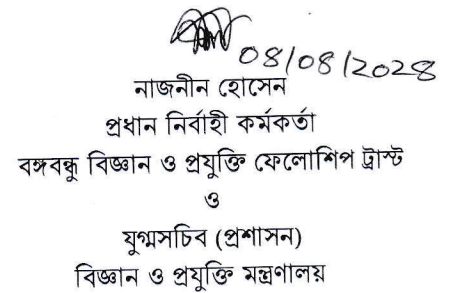 08/08/2028
নাজনীন হোসেন
প্রধান নির্বাহী কর্মকর্তা
বঙ্গবন্ধু বিজ্ঞান ও প্রযুক্তি ফেলোশিপ ট্রাস্ট
ও
যুগ্মসচিব (প্রশাসন)
বিজ্ঞান ও প্রযুক্তি মন্ত্রণালয়